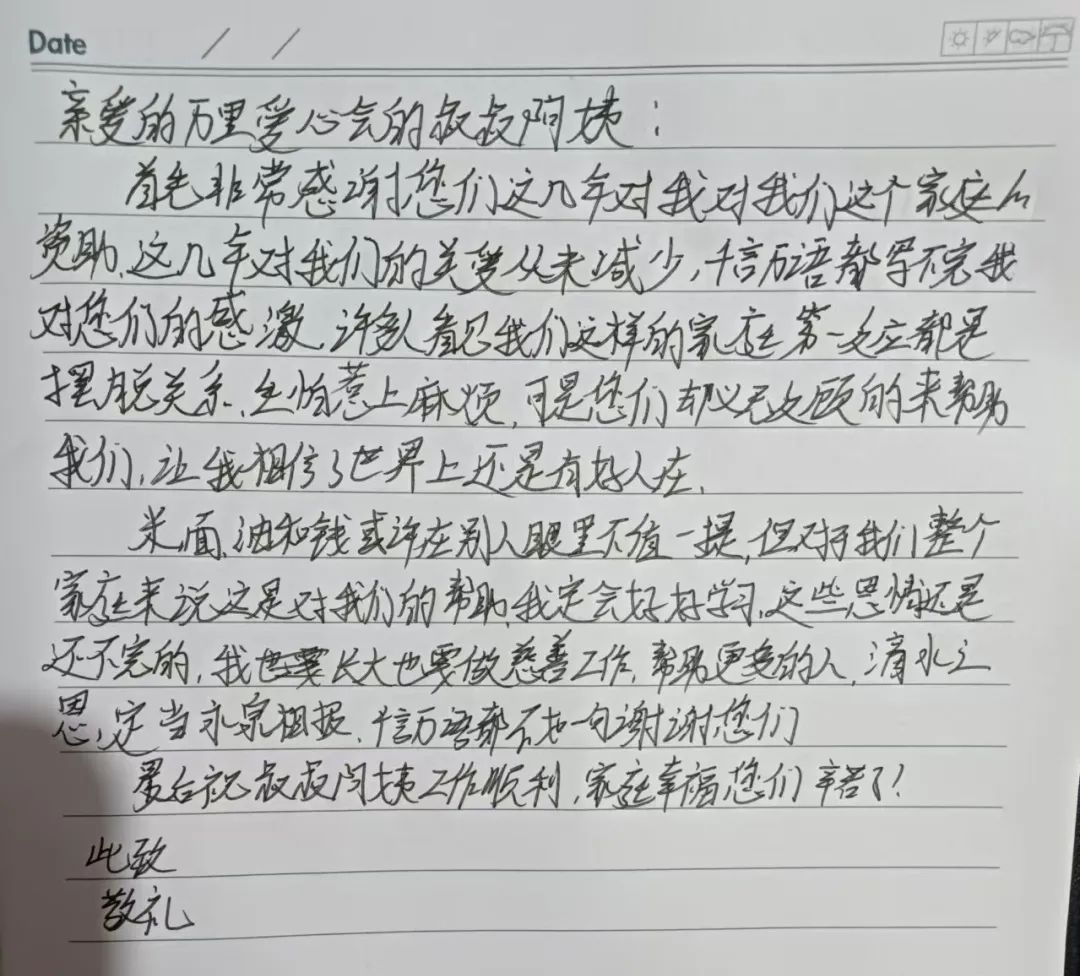 Date / /
亲爱的万里爱心会的叔叔阿姨：
首先非常感谢您们这几年对我对我们这个家庭的
资助,这几年对我们的关爱从未减少,千言万语都写不完我
对您们的感激,许多人看见我们这样的家庭第一反应都是
摆脱关系,生怕惹上麻烦,可是您们却义无反顾的来帮助
我们,让我相信了世界上还是有好人在,
米,面,油和钱或许在别人眼里不值一提,但对于我们整个
家庭来说这是对我们的帮助,我定会好好学习,这些恩情还是
还不完的,我长大也要做慈善工作,帮助更多的人,滴水之
恩,定当永泉相报,千言万语都不如一句谢谢您们
最后祝叔叔阿姨工作顺利,家庭幸福您们辛苦了!
此致
敬礼